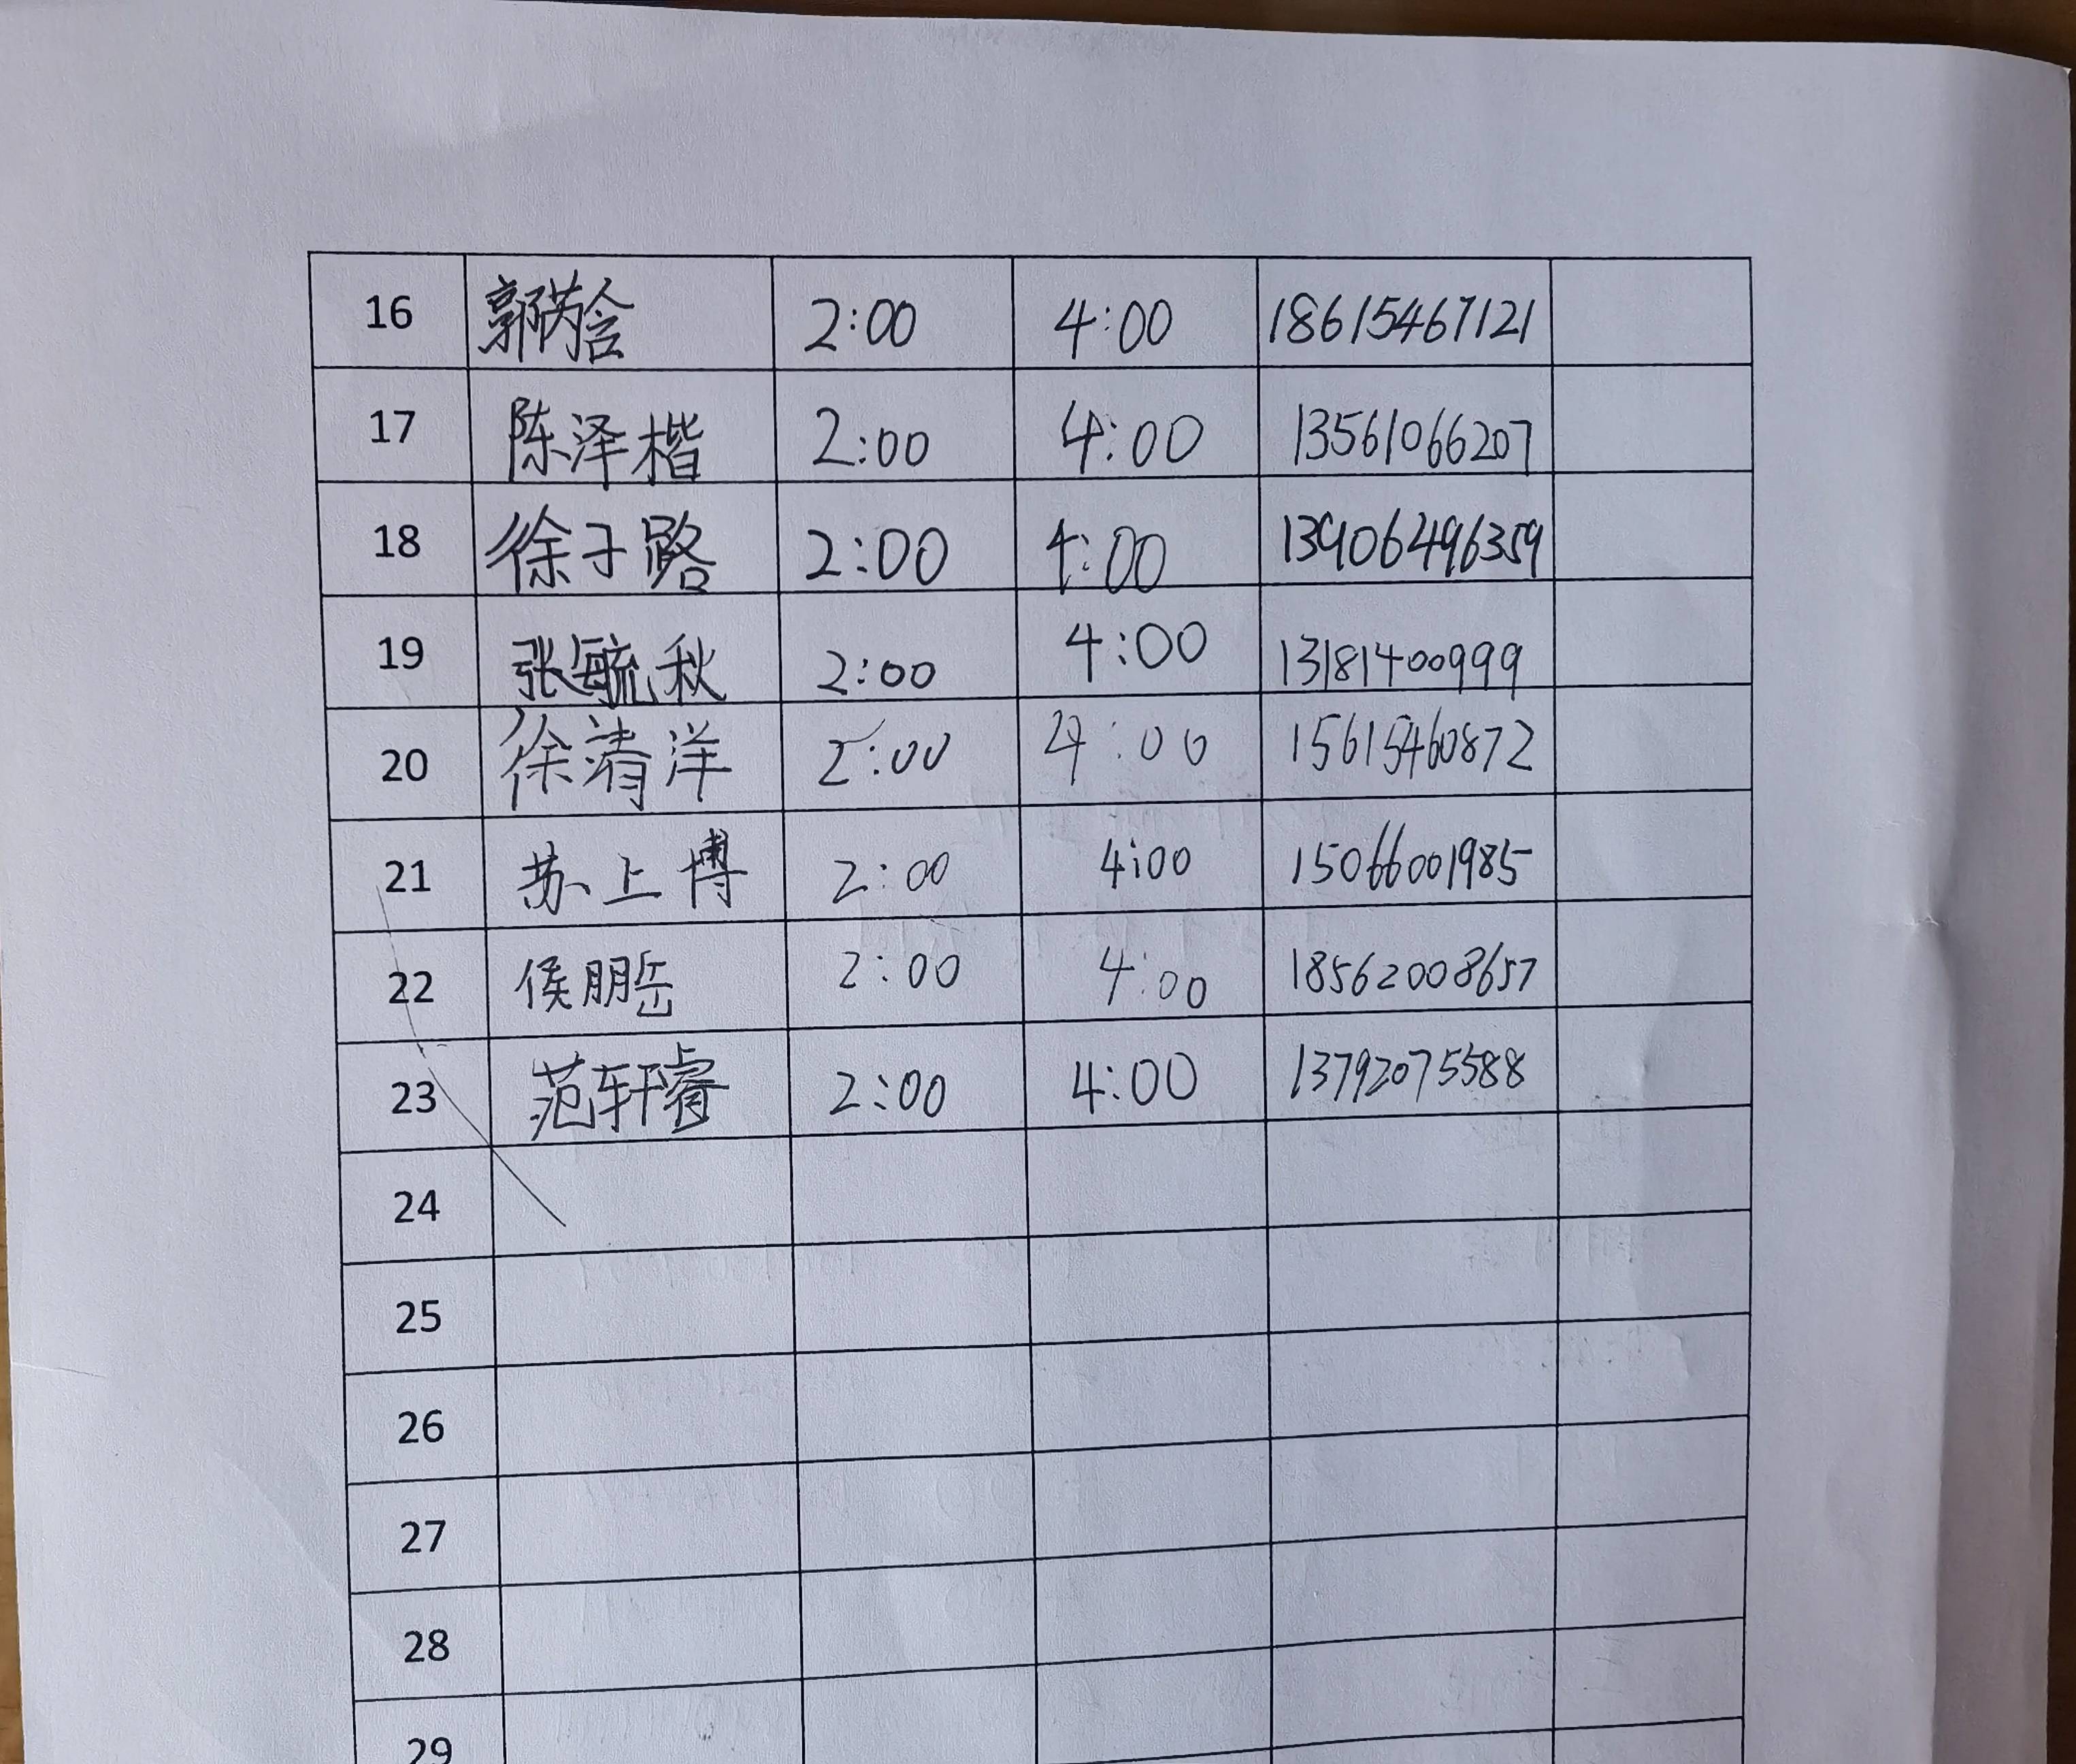 16 郭芮含 2:00 4:00 18615467121
17 陈泽楷 2:00 4:00 13561066207
18 徐子路 2:00 4:00 13906496359
19 张毓秋 2:00 4:00 13181400999
20 徐清洋 2:00 4:00 15615460872
21 苏上博 2:00 4:00 15066001985
22 侯朋岳 2:00 4:00 18562008657
23 范轩睿 2:00 4:00 13792075588
24
25
26
27
28
29